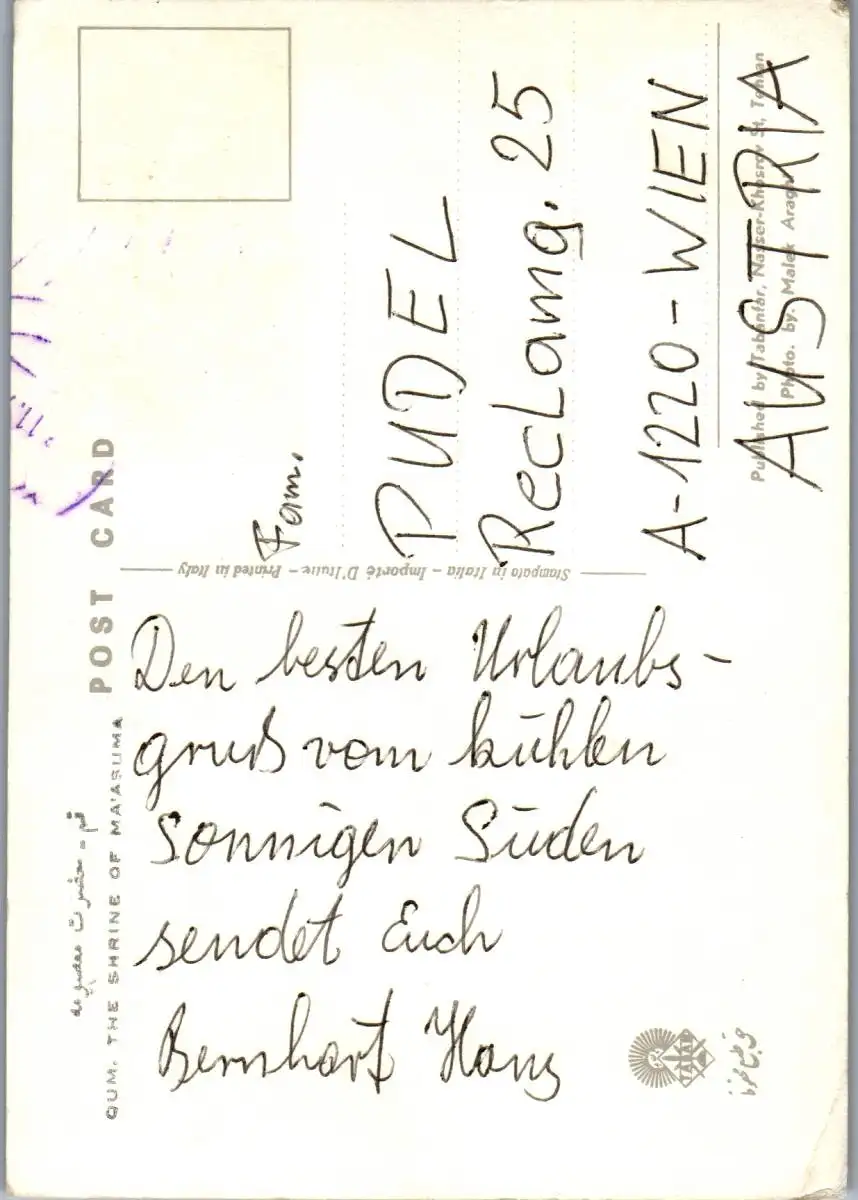 POST CARD
قم - حضرت معصومه
QUM. THE SHRINE OF MA'ASUMA
Den besten Urlaubs-
gruß vom kühlen
sonnigen Süden
sendet Euch
Bernhart Hans
Stampato in Italia - Importé D'Italie - Printed in Italy
Fam.
PUDEL
Reclamg. 25
A-1220-WIEN
AUSTRIA
Published by Tabanfar, Nasser-Khosrov St, Tehran
Photo. by. Malek Araghi